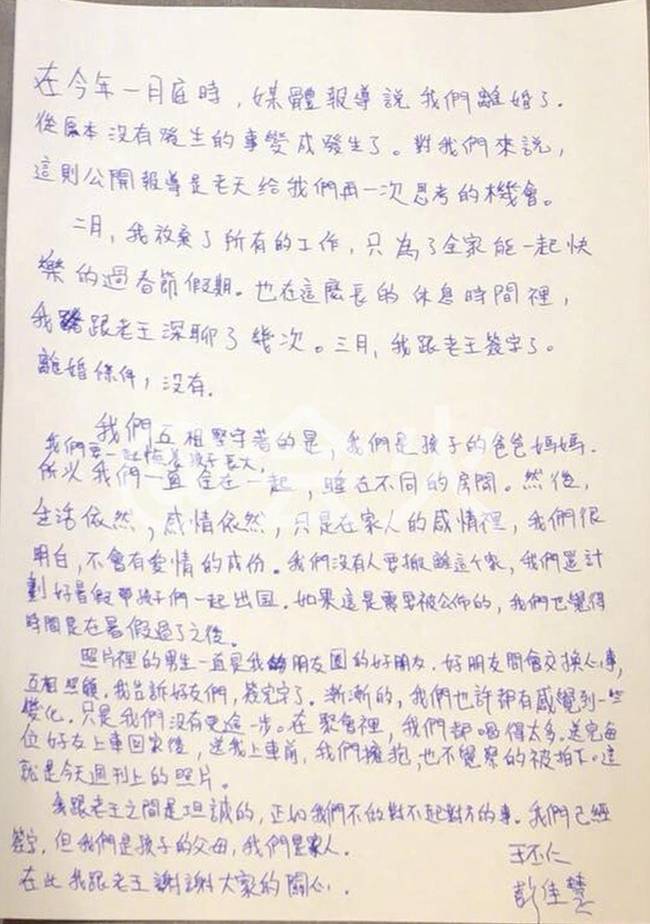 在今年一月底時，媒體報導說我們離婚了．
從原本沒有發生的事變成發生了。對我們來說，
這則公開報導是老天給我們再一次思考的機會。
二月，我放棄了所有的工作，只為了全家能一起快
樂的過春節假期。也在這麼長的休息時間裡，
我跟老王深聊了幾次。三月，我跟老王簽字了。
離婚條件，沒有．
我們互相堅守著的是，我們是孩子的爸爸媽媽．
我們要一起陪著孩子長大，
所以我們一直住在一起，睡在不同的房間。然後，
生活依然，感情依然，只是在家人的感情裡，我們很
明白，不會有愛情的成份。我們沒有人要搬離這个家，我們還計
劃好暑假帶孩子們一起出国．如果這是需要被公佈的，我們也覺得
時間是在暑假過了之後。
照片裡的男生一直是我朋友圈的好朋友．好朋友間會交換心事，
互相照顧，我告訴好友們，簽完字了．漸漸的，我們也許都有感覺到一些
變化．只是我們沒有更進一步。在聚會裡，我們都喝得太多，送完每
位好友上車回家後，送我上車前，我們擁抱，也不覺察的被拍下。這
就是今天週刊上的照片。
我跟老王之間是坦誠的，正如我們不做對不起對方的事．我們已經
簽字，但我們是孩子的父母，我們是家人．
王丕仁
在此我跟老王謝謝大家的關心．
彭佳慧